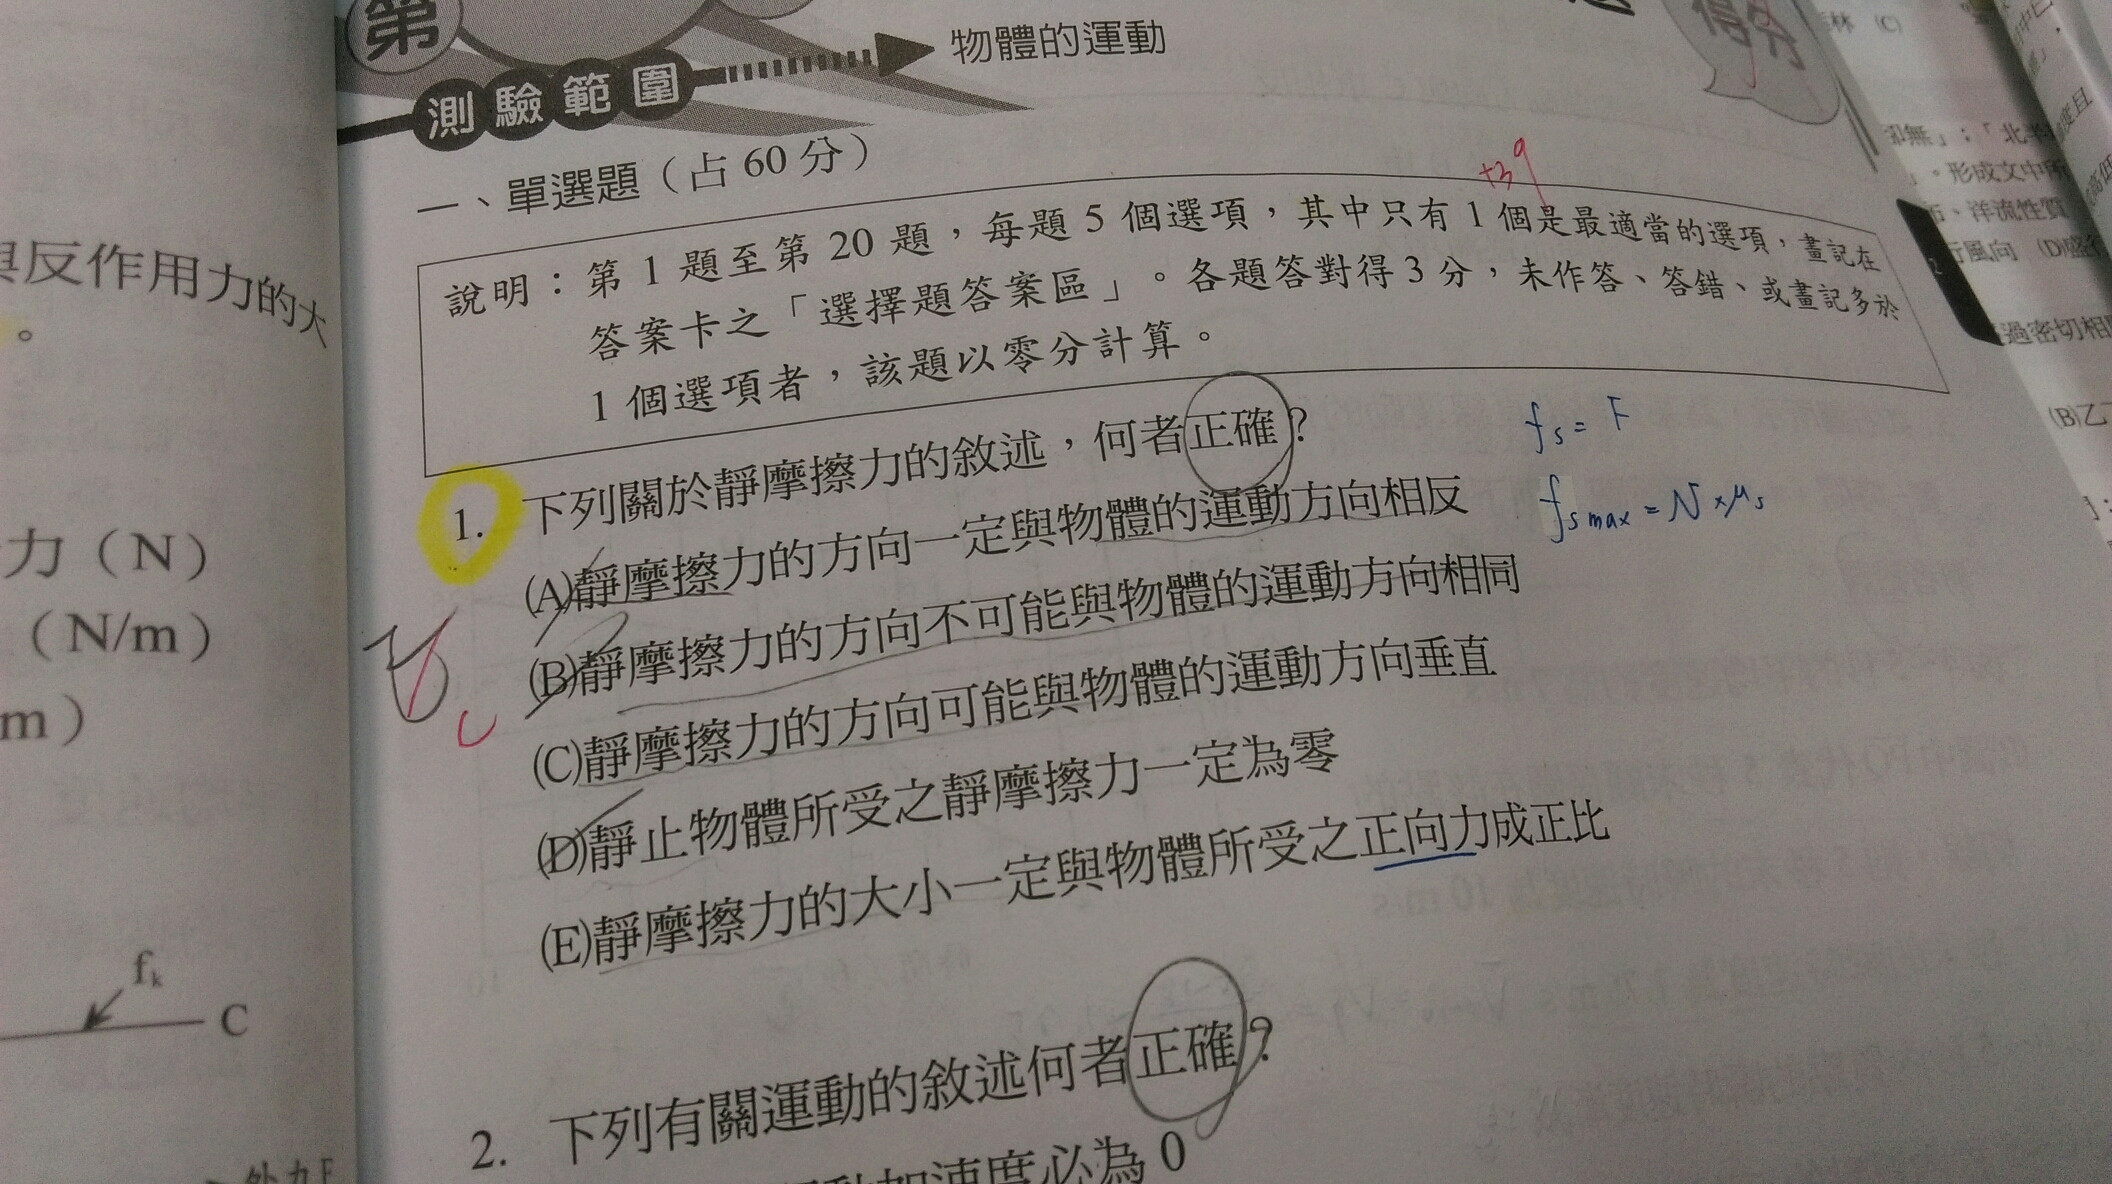 第
測驗範圍
物體的運動
一、單選題（占 60 分）
+39
說明：第 1 題至第 20 題，每題 5 個選項，其中只有 1 個是最適當的選項，畫記在
答案卡之「選擇題答案區」。各題答對得 3 分，未作答、答錯、或畫記多於
1 個選項者，該題以零分計算。
1. 下列關於靜摩擦力的敘述，何者正確？
(A)靜摩擦力的方向一定與物體的運動方向相反
(B)靜摩擦力的方向不可能與物體的運動方向相同
(C)靜摩擦力的方向可能與物體的運動方向垂直
(D)靜止物體所受之靜摩擦力一定為零
(E)靜摩擦力的大小一定與物體所受之正向力成正比
fs = F
fs max = N × μs
C
2. 下列有關運動的敘述何者正確？
動加速度必為 0
與反作用力的大
。
力（N）
（N/m）
m）
fk
C
外力F
得分
林 (C)
即無」；「北
。形成文中所
、洋流性質
行風向 (D)盛行
過密切相
(B)乙